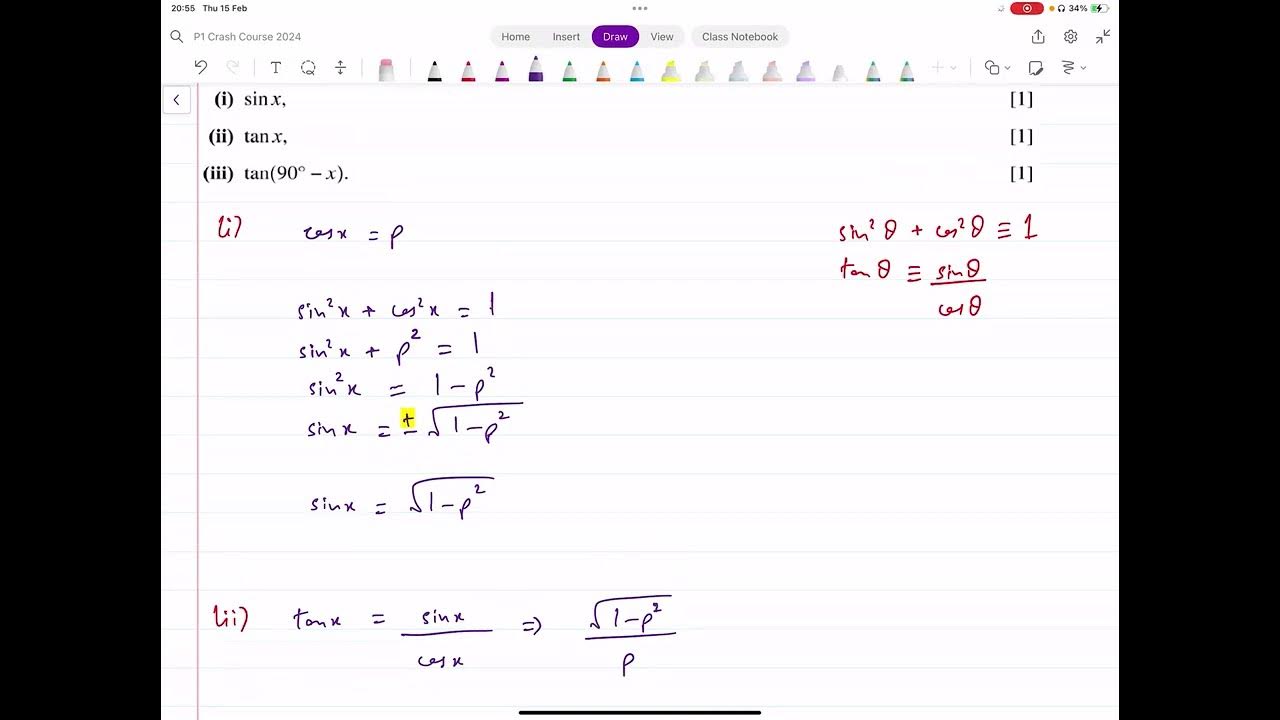 20:55 Thu 15 Feb 34%
P1 Crash Course 2024 Home Insert Draw View Class Notebook
T
(i) sin x, [1]
(ii) tan x, [1]
(iii) tan(90° − x). [1]
(i) cos x = p
sin² θ + cos² θ ≡ 1
tan θ ≡ sin θ / cos θ
sin² x + cos² x = 1
sin² x + p² = 1
sin² x = 1 − p²
sin x = ± √(1 − p²)
sin x = √(1 − p²)
(ii) tan x = sin x / cos x ⇒ √(1 − p²) / p